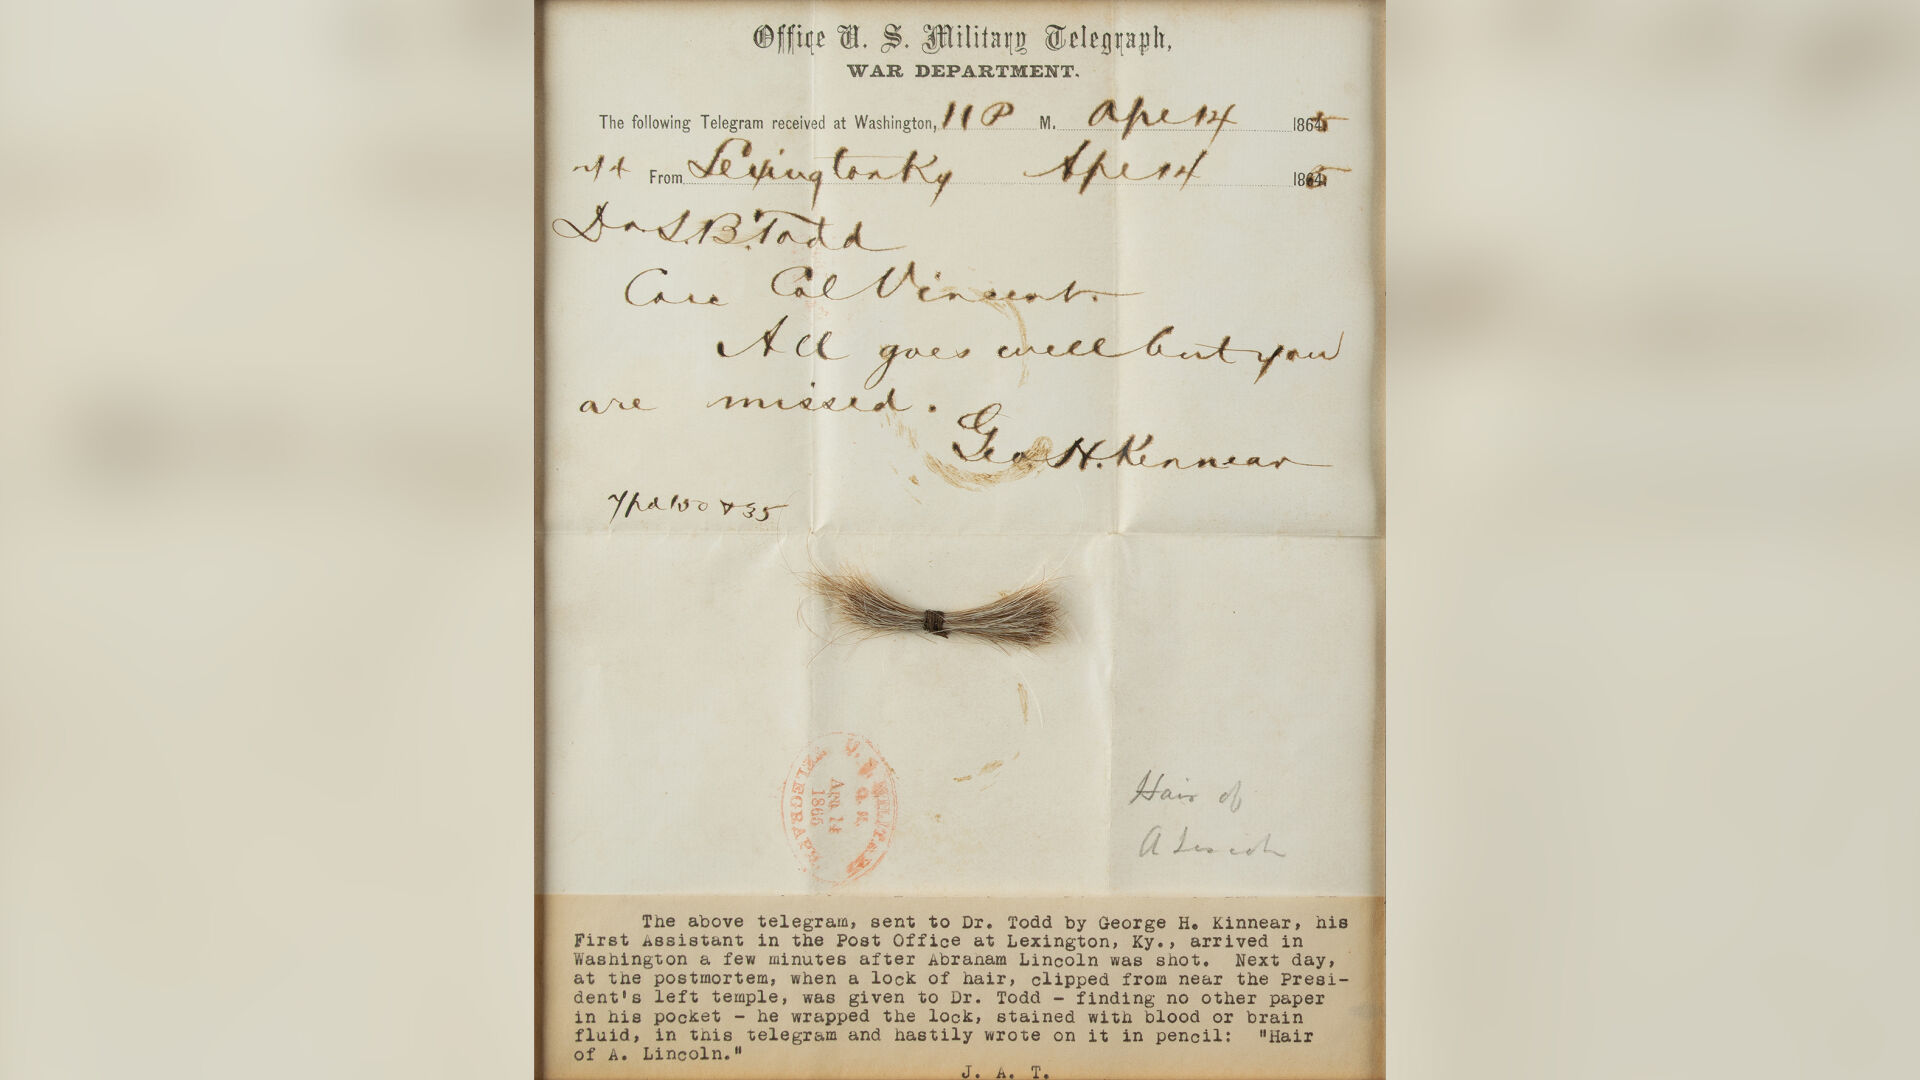 Office U. S. Military Telegraph,
WAR DEPARTMENT.
The following Telegram received at Washington, 11 P M. Apr 14 1865
From Lexington Ky Apr 14 1865
Dr L. B. Todd
Care Col Vincent.
All goes well but you
are missed.
Geo H. Kinnear
7 pd 150 & 35
U. S. MILITARY
TELEGRAPH
Apr 14
1865
Hair of
A Lincoln
The above telegram, sent to Dr. Todd by George H. Kinnear, his
First Assistant in the Post Office at Lexington, Ky., arrived in
Washington a few minutes after Abraham Lincoln was shot. Next day,
at the postmortem, when a lock of hair, clipped from near the Presi-
dent's left temple, was given to Dr. Todd - finding no other paper
in his pocket - he wrapped the lock, stained with blood or brain
fluid, in this telegram and hastily wrote on it in pencil: "Hair
of A. Lincoln."
J. A. T.